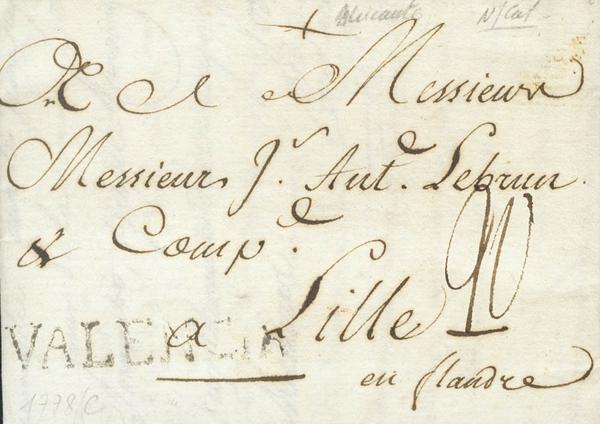 Alicante N/Cat.
A Messieurs
Messieurs Jn. Ante. Lebrun
& Compe.
20
VALENCIA
a Lille
en flandre
1778/C